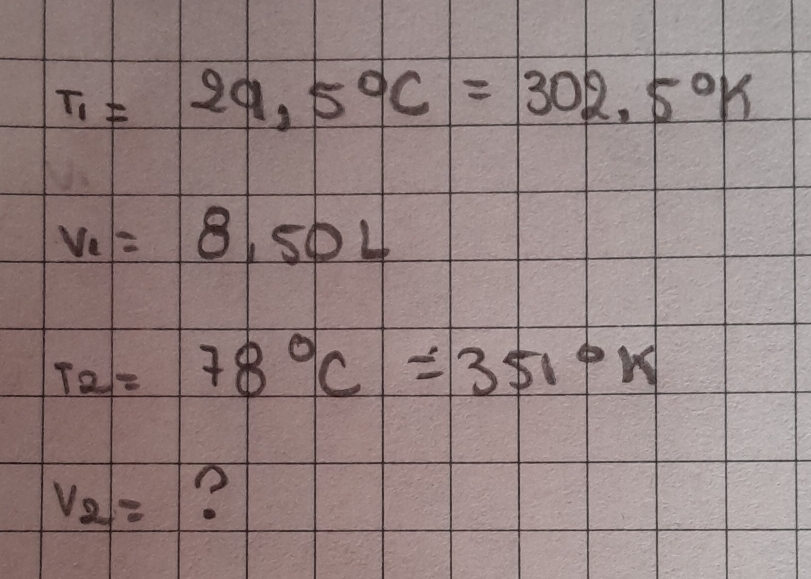 T1 = 29,5°C = 302,5°K
V1 = 8,50L
T2 = 78°C = 351°K
V2 = ?